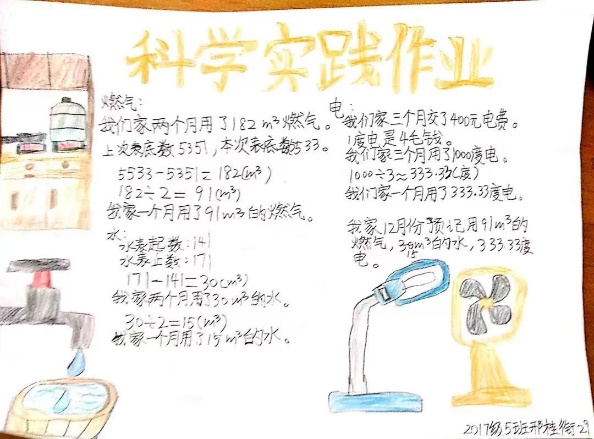 科学实践作业
燃气：
我们家两个月用了182m³燃气。
上次表底数5351，本次表底数5533。
5533-5351=182(m³)
182÷2=91(m³)
我家一个月用了91m³的燃气。
水：
水表起数：141
水表止数：171
171-141=30(m³)
我家两个月用了30m³的水。
30÷2=15(m³)
我家一个月用了15m³的水。
电：
我们家三个月交了400元电费。
1度电是4毛钱。
我们家三个月用了1000度电。
1000÷3≈333.33(度)
我们家一个月用了333.33度电。
我家12月份预记用91m³的
燃气，15m³的水，333.33度
电。
2017级5班邢桂衔